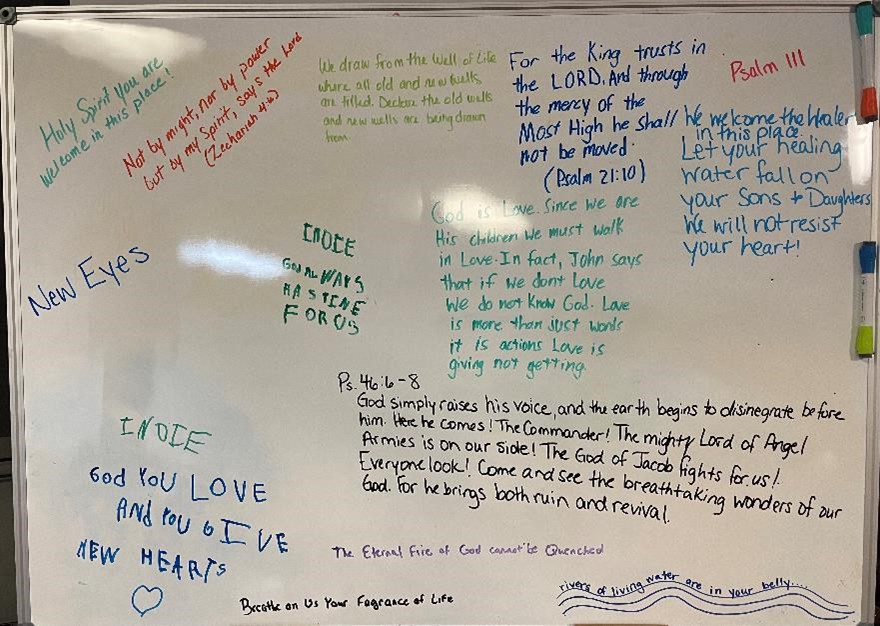 Holy Spirit you are
welcome in this place!
Not by might, nor by power
but by my Spirit, says the Lord
(Zechariah 4:6)
We draw from the Well of Life
where all old and new wells
are filled. Declare the old wells
and new wells are being drawn
from.
For the King trusts in
the LORD. And through
the mercy of the
Most High he shall
not be moved.
(Psalm 21:10)
Psalm 111
We welcome the Healer
in this place.
Let your healing
water fall on
your Sons + Daughters
We will not resist
your heart!
God is Love. Since we are
His children we must walk
in Love. In fact, John says
that if we dont love
we do not know God. Love
is more than just words
it is actions Love is
giving not getting.
New Eyes
INDIE
GOD ALWAYS
HAS TINE
FOR US
Ps. 46:6-8
God simply raises his voice, and the earth begins to disinegrate before
him. Here he comes! The Commander! The mighty Lord of Angel
Armies is on our side! The God of Jacob fights for us!
Everyone look! Come and see the breathtaking wonders of our
God. For he brings both ruin and revival.
INDIE
God YOU LOVE
AND YOU GIVE
NEW HEARTS
The Eternal Fire of God cannot be Quenched
Breathe on Us Your Fragrance of Life
rivers of living water are in your belly....